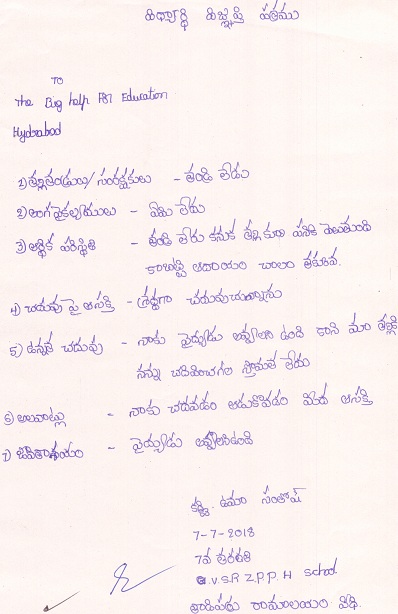 విద్యార్థి విజ్ఞప్తి పత్రము
TO
The Big help For Education
Hyderabad
1) తల్లితండ్రులు/ సంరక్షకులు - తండ్రి లేడు
2) అంగవైకల్యములు - ఏమి లేదు
3) ఆర్థిక పరిస్థితి - తండ్రి లేరు కనుక తల్లి కూలి పనికి వెలుతుంది
కాబట్టి ఆదాయం చాలా తకువ.
4) చదువు పై ఆసక్తి - శ్రద్ధగా చదువుచున్నాను
5) ఉన్నత చదువు - నాకు వైద్యుడు అవ్వాలని ఉంది కాని మా తల్లి
నన్ను చదివించగల స్తోమత లేదు
6) అలవాట్లు - నాకు చదవడం ఆడుకోవడం మీద ఆసక్తి
7) జీవితాశయం - వైద్యుడు అవ్వాలనిఉంది
ఉమా సంతోష్
7-7-2018
7వ తరగతి
G.V.S.R Z.P.P.H School
రామాలయం వీధి.